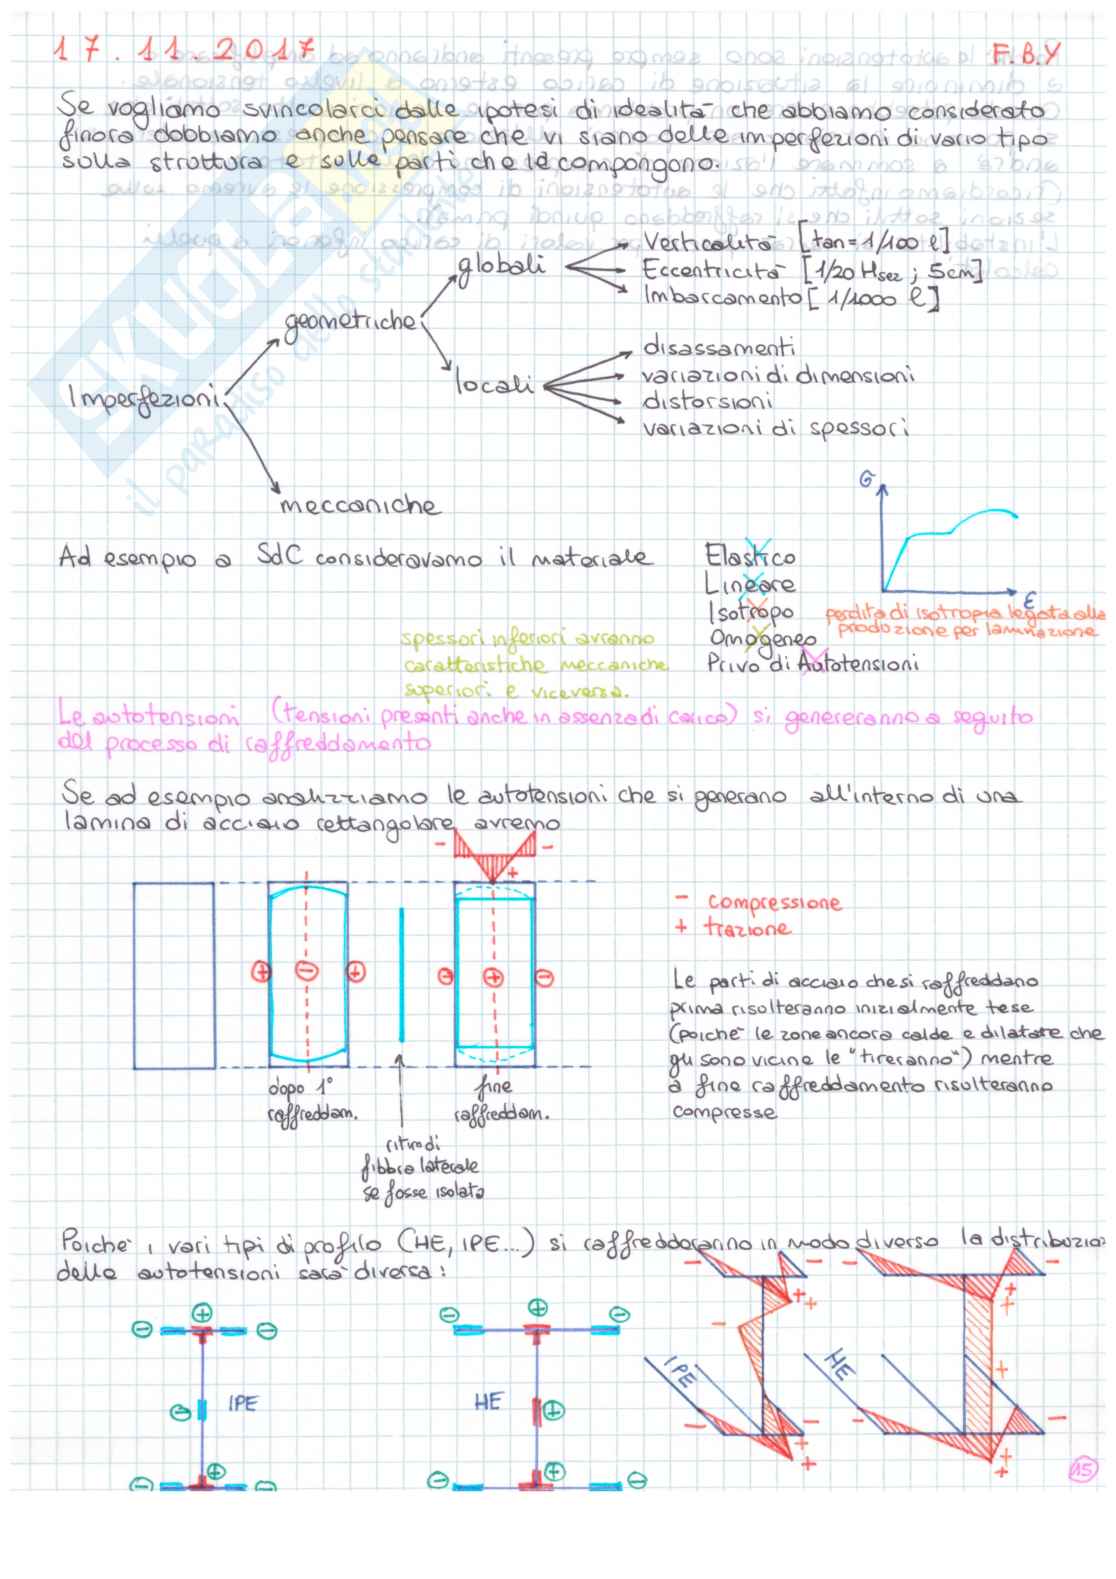 17.11.2017 F.B.Y
Se vogliamo svincolarci dalle ipotesi di idealità che abbiamo considerato
finora dobbiamo anche pensare che vi siano delle imperfezioni di vario tipo
sulla struttura e sulle parti che la compongono.
Verticalità [tan=1/100 l]
globali
Eccentricità [1/20 Hsez ; 5cm]
Imbarcamento [1/1000 l]
geometriche
disassamenti
locali
variazioni di dimensioni
Imperfezioni
distorsioni
variazioni di spessori
meccaniche
σ
Ad esempio a SdC consideravamo il materiale
Elastico
Lineare
ε
Isotropo
perdita di isotropia legata alla
produzione per laminazione
Omogeneo
spessori inferiori avranno
caratteristiche meccaniche
superiori e viceversa.
Privo di Autotensioni
Le autotensioni (tensioni presenti anche in assenza di carico) si genereranno a seguito
del processo di raffreddamento
Se ad esempio analizziamo le autotensioni che si generano all'interno di una
lamina di acciaio rettangolare avremo
- -
+
- compressione
+ trazione
+ - + - + -
Le parti di acciaio che si raffreddano
prima risulteranno inizialmente tese
(poiché le zone ancora calde e dilatate che
gli sono vicine le "tireranno") mentre
a fine raffreddamento risulteranno
compresse
dopo 1°
raffreddam.
fine
raffreddam.
ritiro di
fibbra laterale
se fosse isolata
Poiché i vari tipi di profilo (HE, IPE...) si raffredderanno in modo diverso la distribuzio
delle autotensioni sarà diversa:
- - - -
+ + + +
- + - - + -
-
IPE HE
IPE HE
- + +
- - - -
+ + + +
- + - - + -
15
SKUOLA
il paradiso dello studente